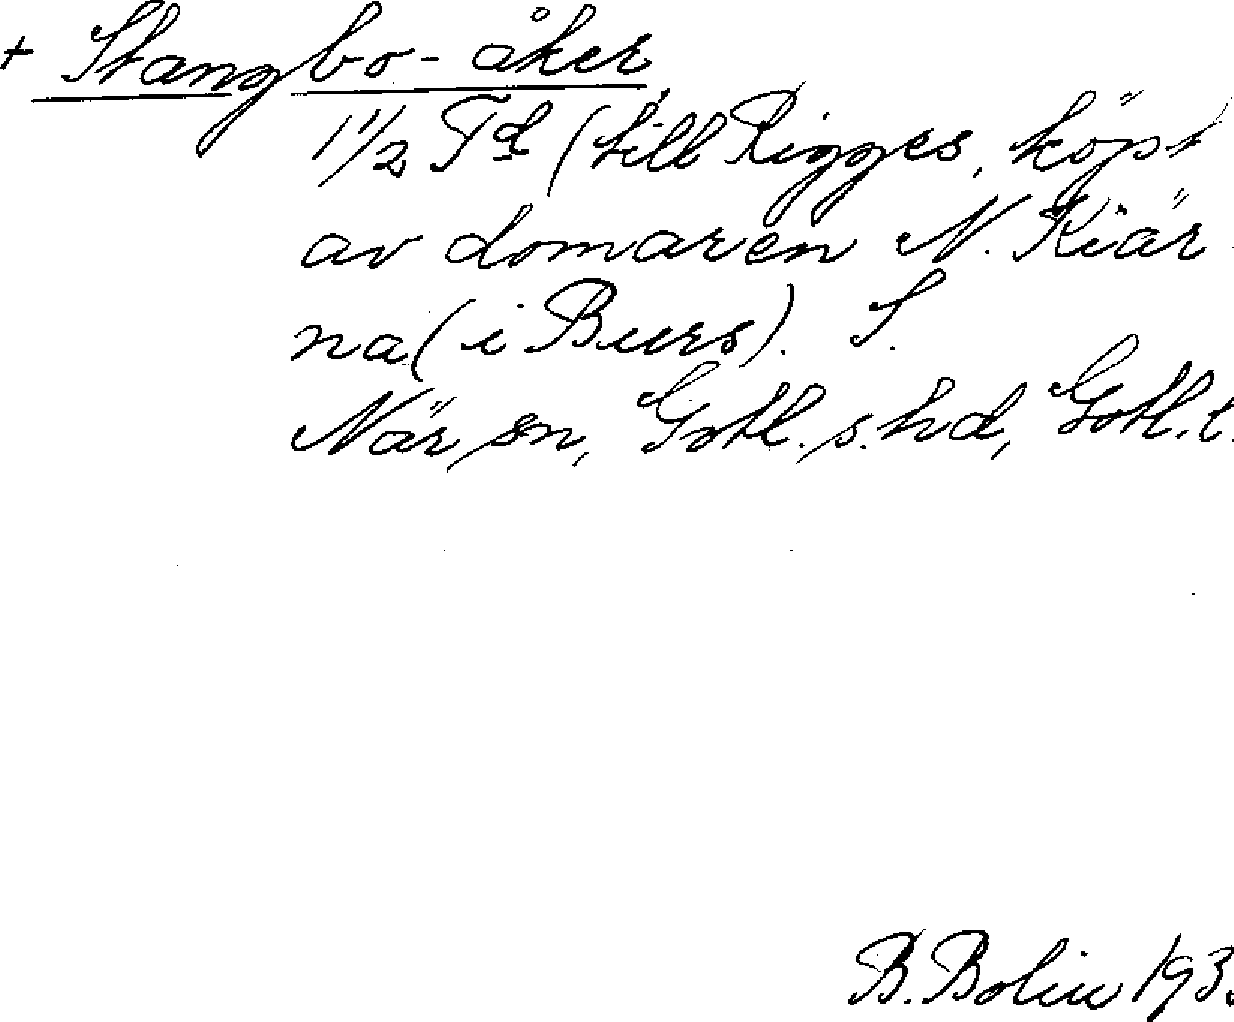 + Stangbo-åker,
1 1/2 Td (till Rigges, köpt
av domaren N. Kiär-
na (i Burs). S.
När sn, Gotl. s. hd, Gotl. l.
B. Bolin 193